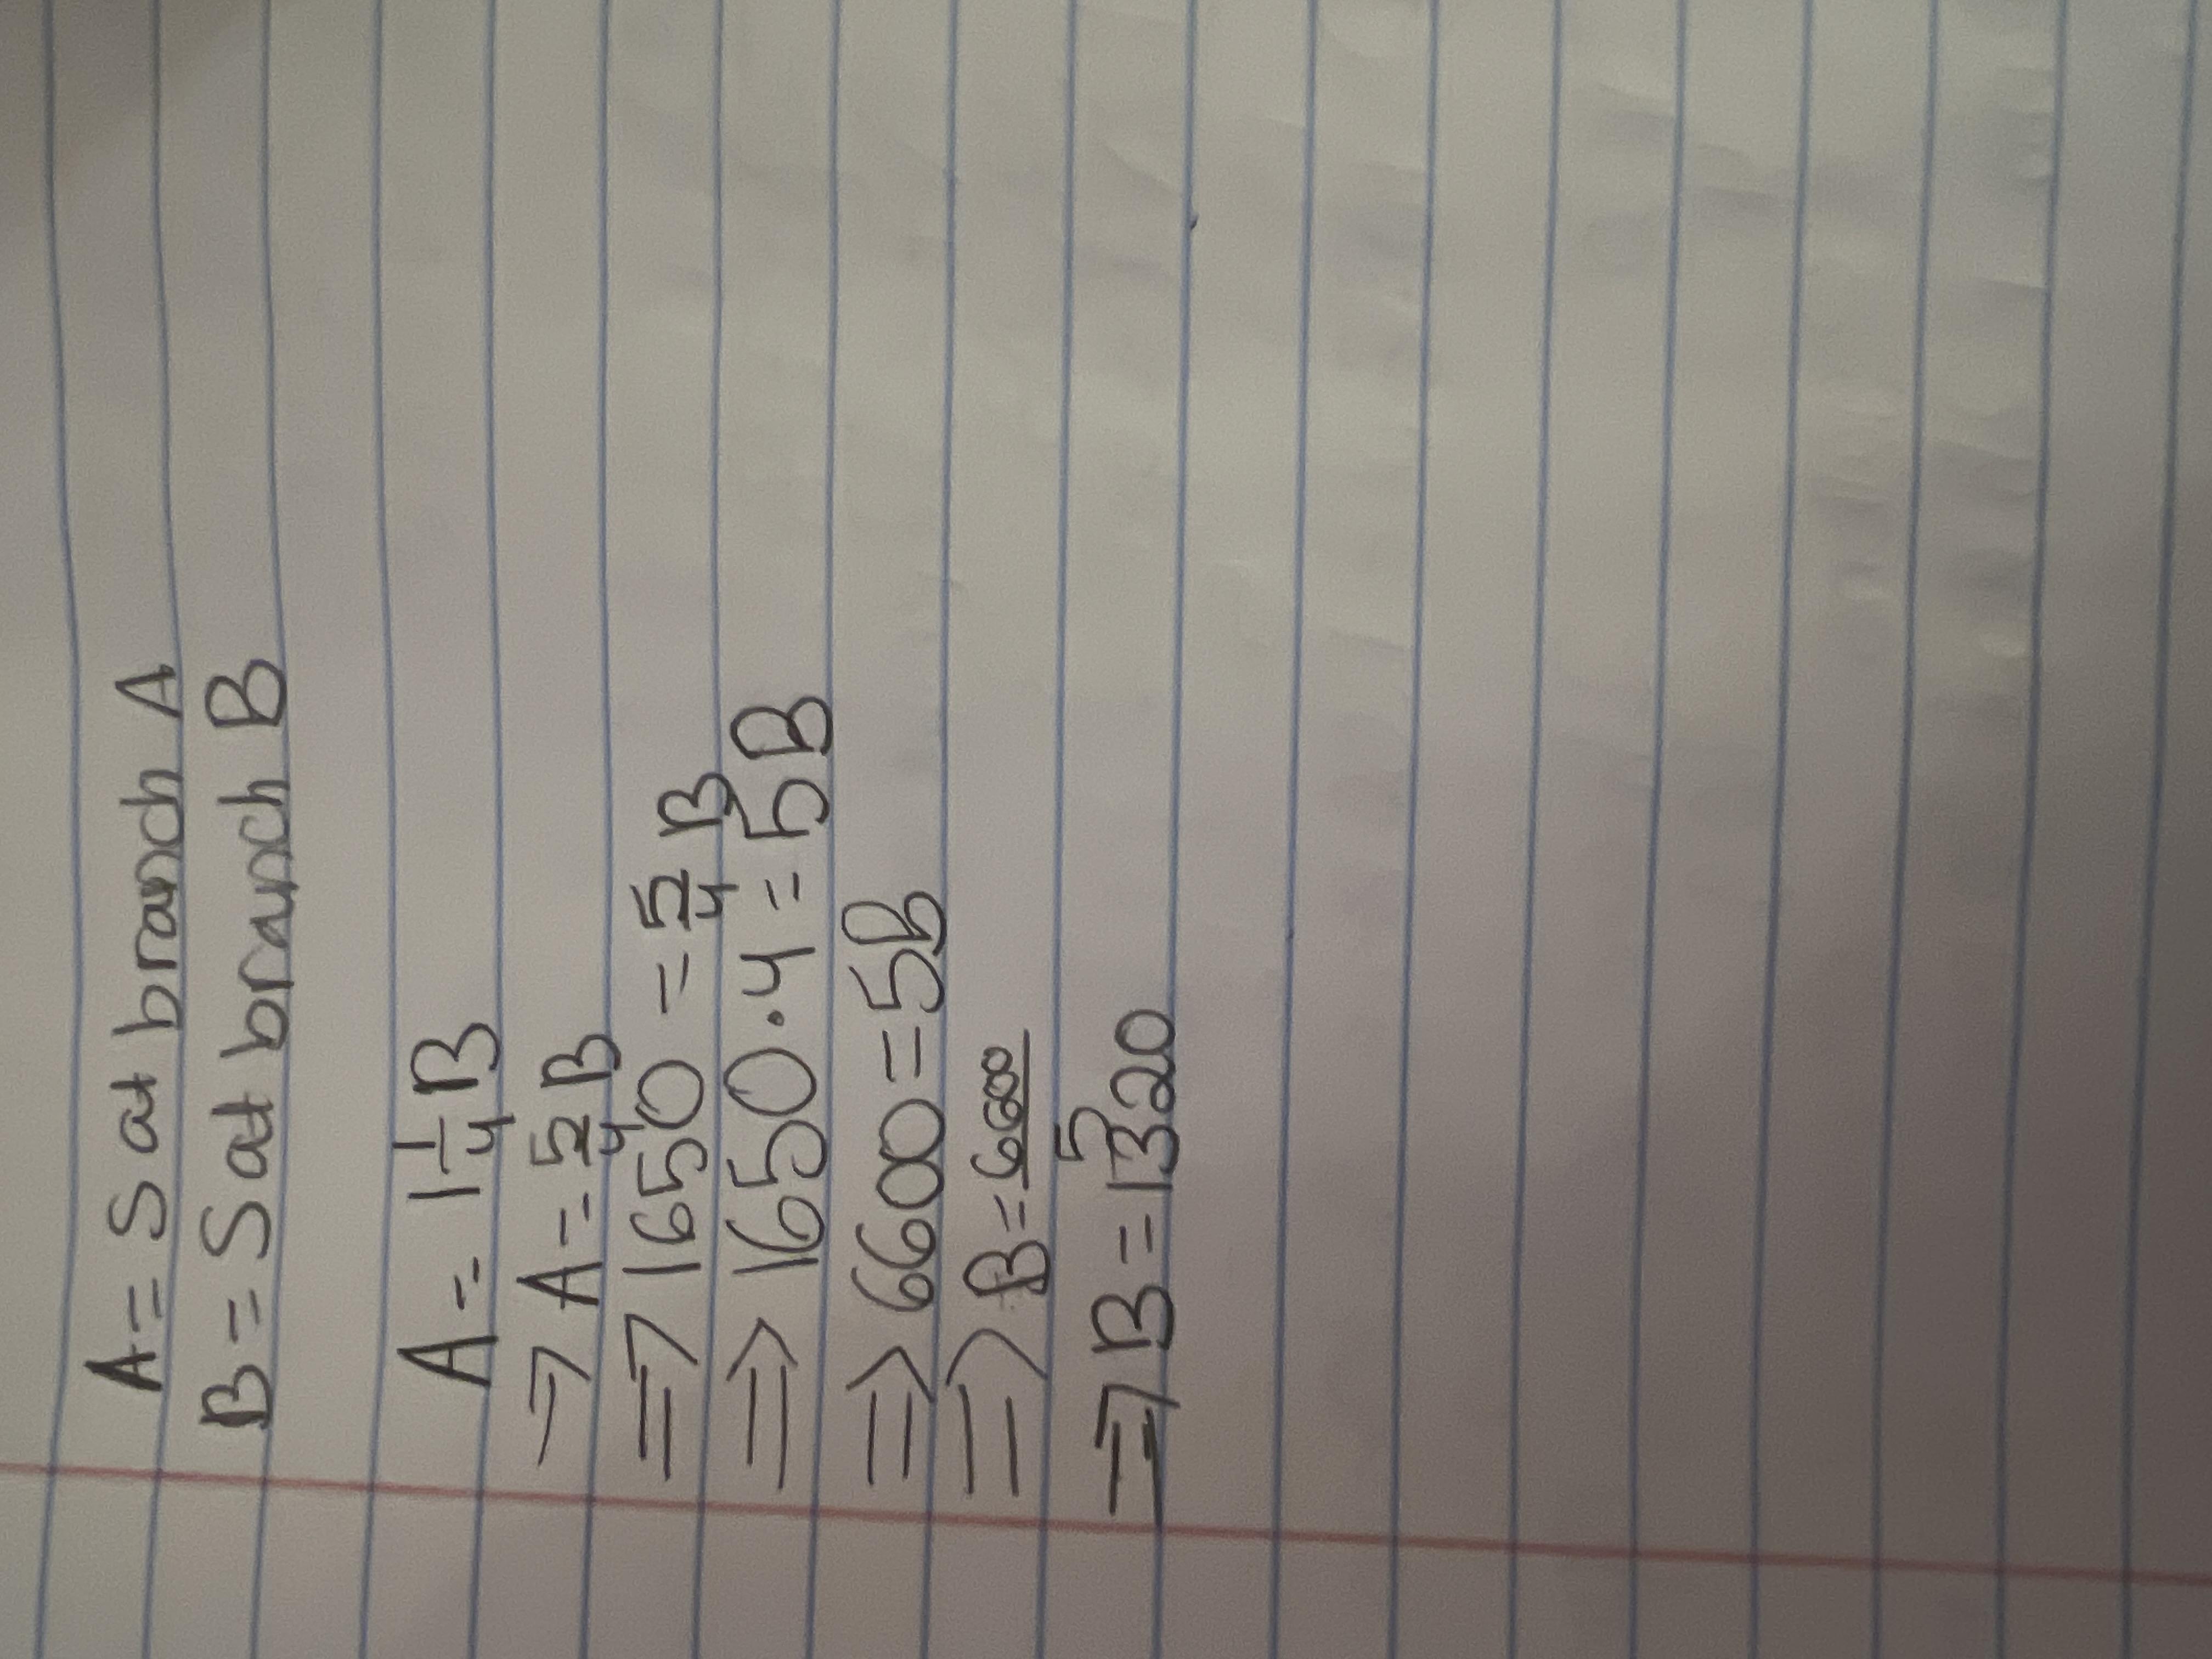 A = S at branch A
B = S at branch B
A = 1 1/4 B
→ A = 5/4 B
⇒ 1650 = 5/4 B
⇒ 1650 · 4 = 5B
⇒ 6600 = 5B
⇒ B = 6600/5
⇒ B = 1320